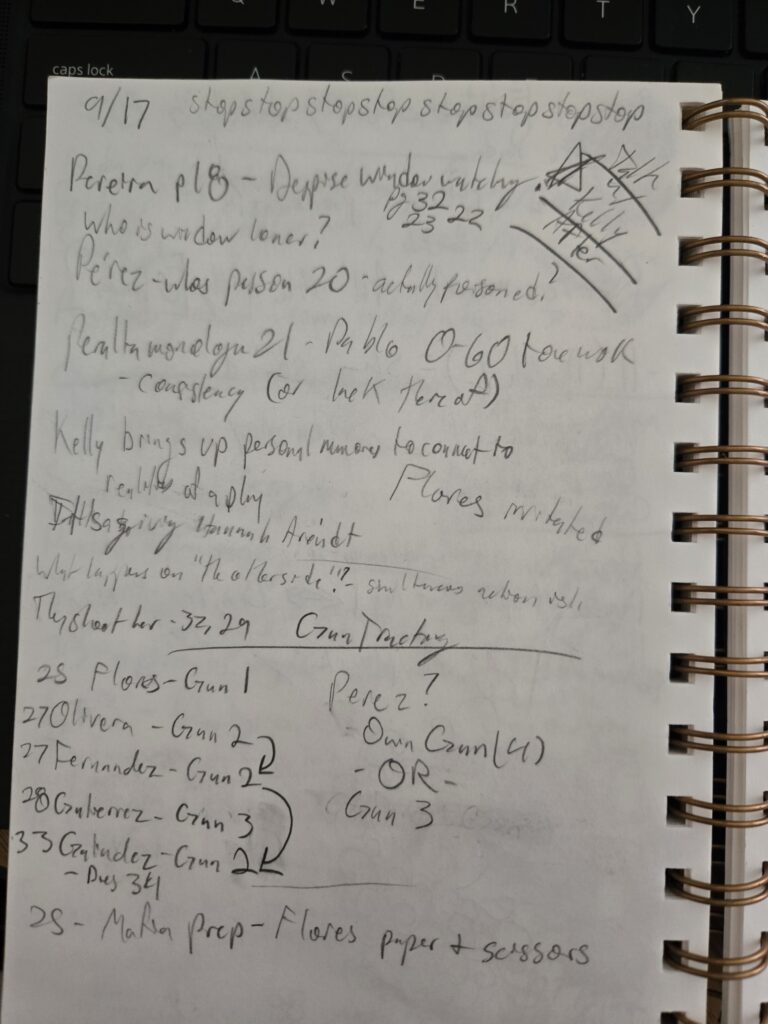 Q W E R T Y
caps lock A S D
9/17 stopstopstopstop stopstopstopstop
Pereira p18 - Despise window watchy.
Talk w/ Kelly After
Pg 32
23 22
who is window loner?
Pérez - who's person 20 - actually poisoned?
Peralta monologue 21 - Pablo 0-60 tone work
- consistency (or lack thereof)
Kelly brings up personal memories to connect to
realities of a play
Flores irritated
giving Hannah Arendt
What happens on "the otherside"? - simultaneous action
They shoot her - 32, 29 Gun Tracking
25 Flores - Gun 1
27 Olivera - Gun 2
27 Fernandez - Gun 2
28 Gutierrez - Gun 3
33 Galindez - Gun 2
- Dies 34
Perez?
- Own Gun (4)
- OR -
Gun 3
25 - Mafia prep - Flores paper + scissors